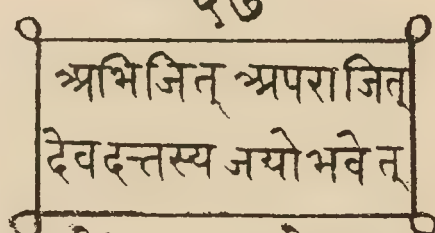 ५७
अभिजित् अपराजित्
देवदत्तस्य जयो भवेत्